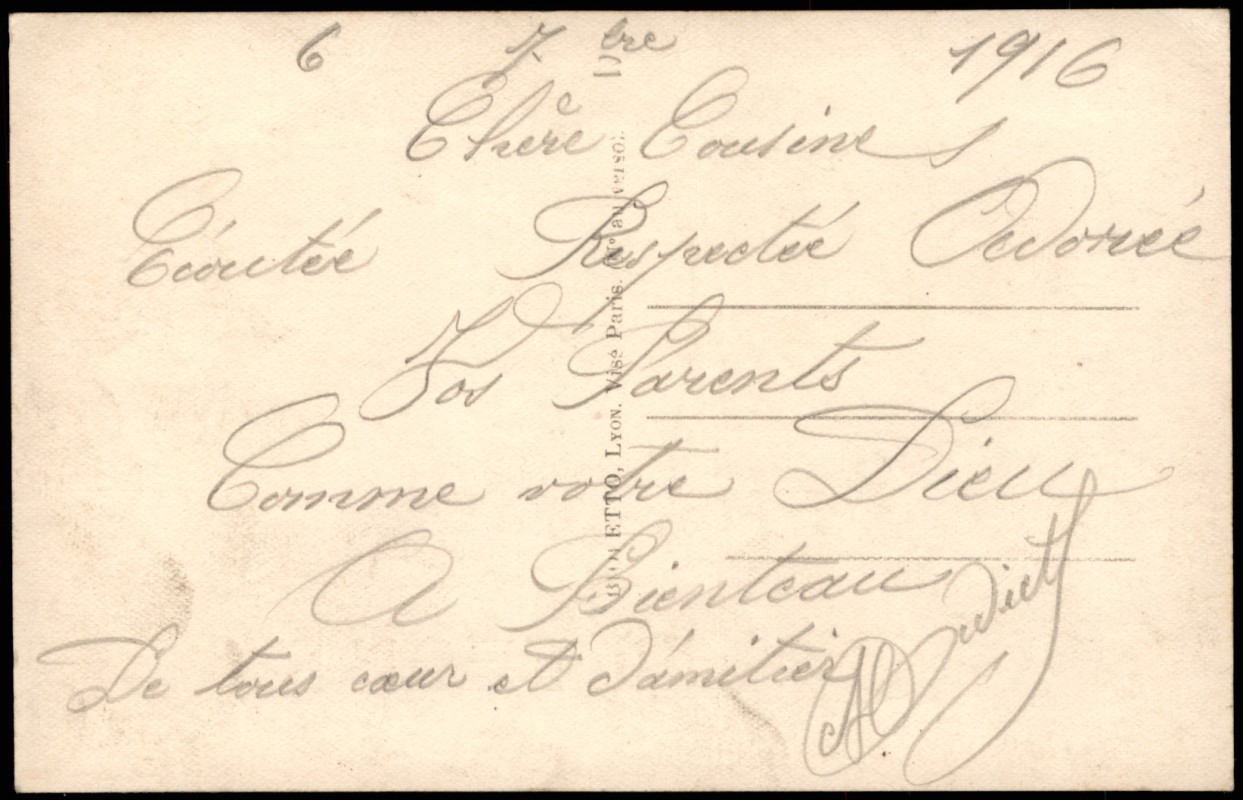 6 7bre 1916
Chère Cousine
Écoutée Respectée Adorée
Vos Parents
Comme votre Dieu
A Bienteau
De tous cœur et d'amitier
ETTO, LYON. Visé Paris. (N° au verso).